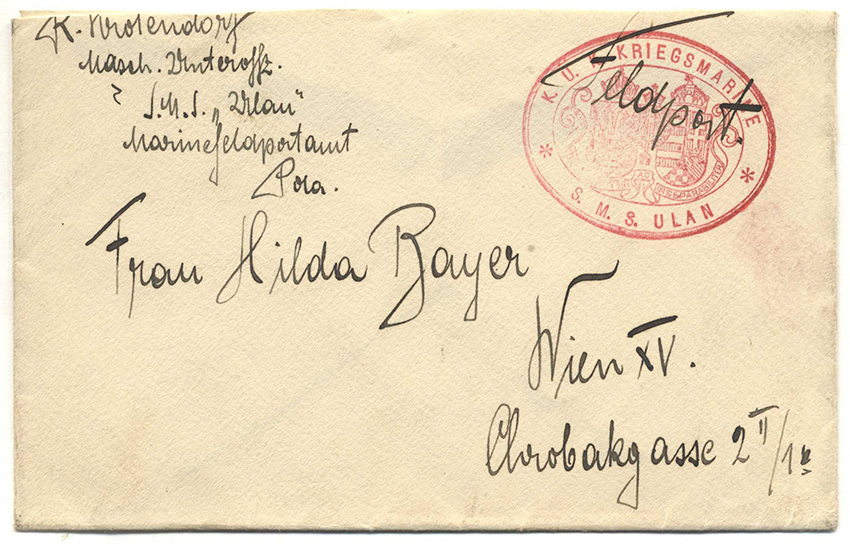 K. Wolendorf
Masch. Unteroffz.
S.M.S. „Ulan"
Marinefeldpostamt
Pola.
Feldpost.
K. U. K. KRIEGSMARINE
INSEPARABILITER
* S. M. S. ULAN *
Frau Hilda Bayer
Wien XV.
Chrobakgasse 2 II/1